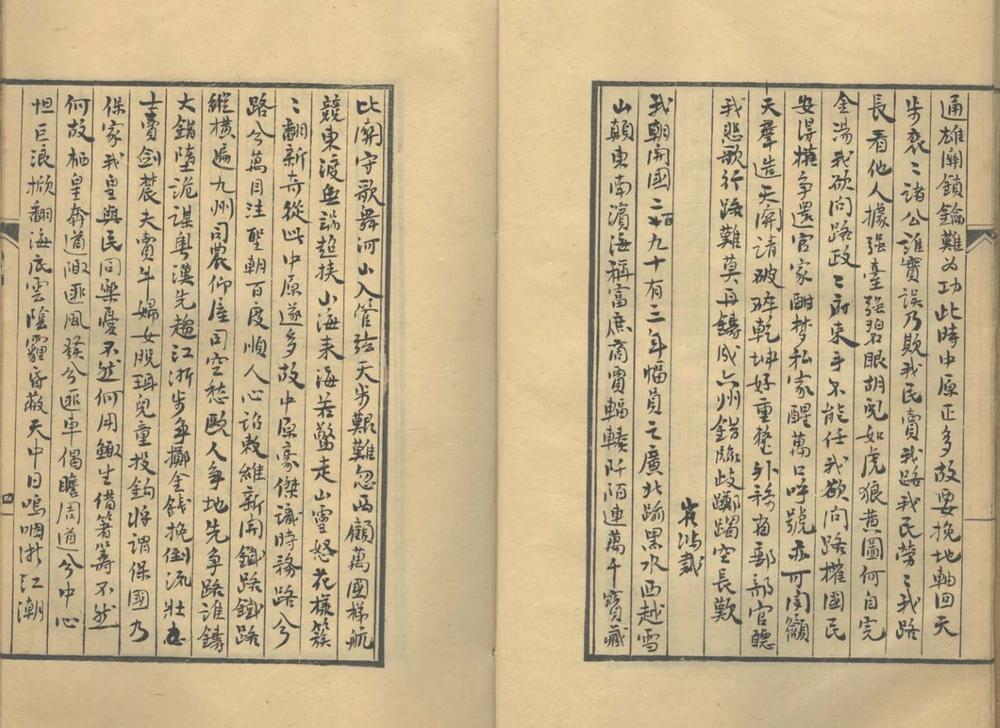 通雄關鎖鑰難为功此時中原正多故要挽地軸回天
步袞〻諸公誰實誤乃欺我民賣我路我民勞〻我路
長看他人據强臺强碧眼胡兒如虎狼黄圖何自完
金湯我欲问路政〻府束手不能任我欲问路權國民
安得横争還官家酣梦私家醒萬口呼號亦可闻籲
天羣造天闻請破碎乾坤好重整外務省郵部官聽
我悲歌行路難莫再鑄成六州錯臨歧躑躅空長歎
我朝開國二百九十有二年幅員之廣北踰黑水西越雪
山巔東南濱海稱富庶商賈輻輳阡陌連萬千寳藏
比關守歌舞河山入管弦天步艱難忽西顧萬國梯航
競東渡無端超挟山海来海若驚走山靈怒花樣簇
〻翻新奇從此中原遂多故中原豪傑識時務路兮
路兮萬目注聖朝百度順人心詔敕維新闹鐵路鐵路
縱横遍九州司農仰屋司空愁歐人争地先争路誰鑄
大錯墮詭謀粤漢先趨江浙步争擲金錢挽倒流壮
士賣剑農夫賣牛婦女脱珥兒童投鈎將謂保國乃
保家我皇與民同樂憂不然何用鯫生借箸籌不然
何故栖皇奔道陬匪風發兮匪車偈瞻周道兮中心
怛巨浪掀翻海底雲陰霾昏蔽天中日嗚咽浙江潮